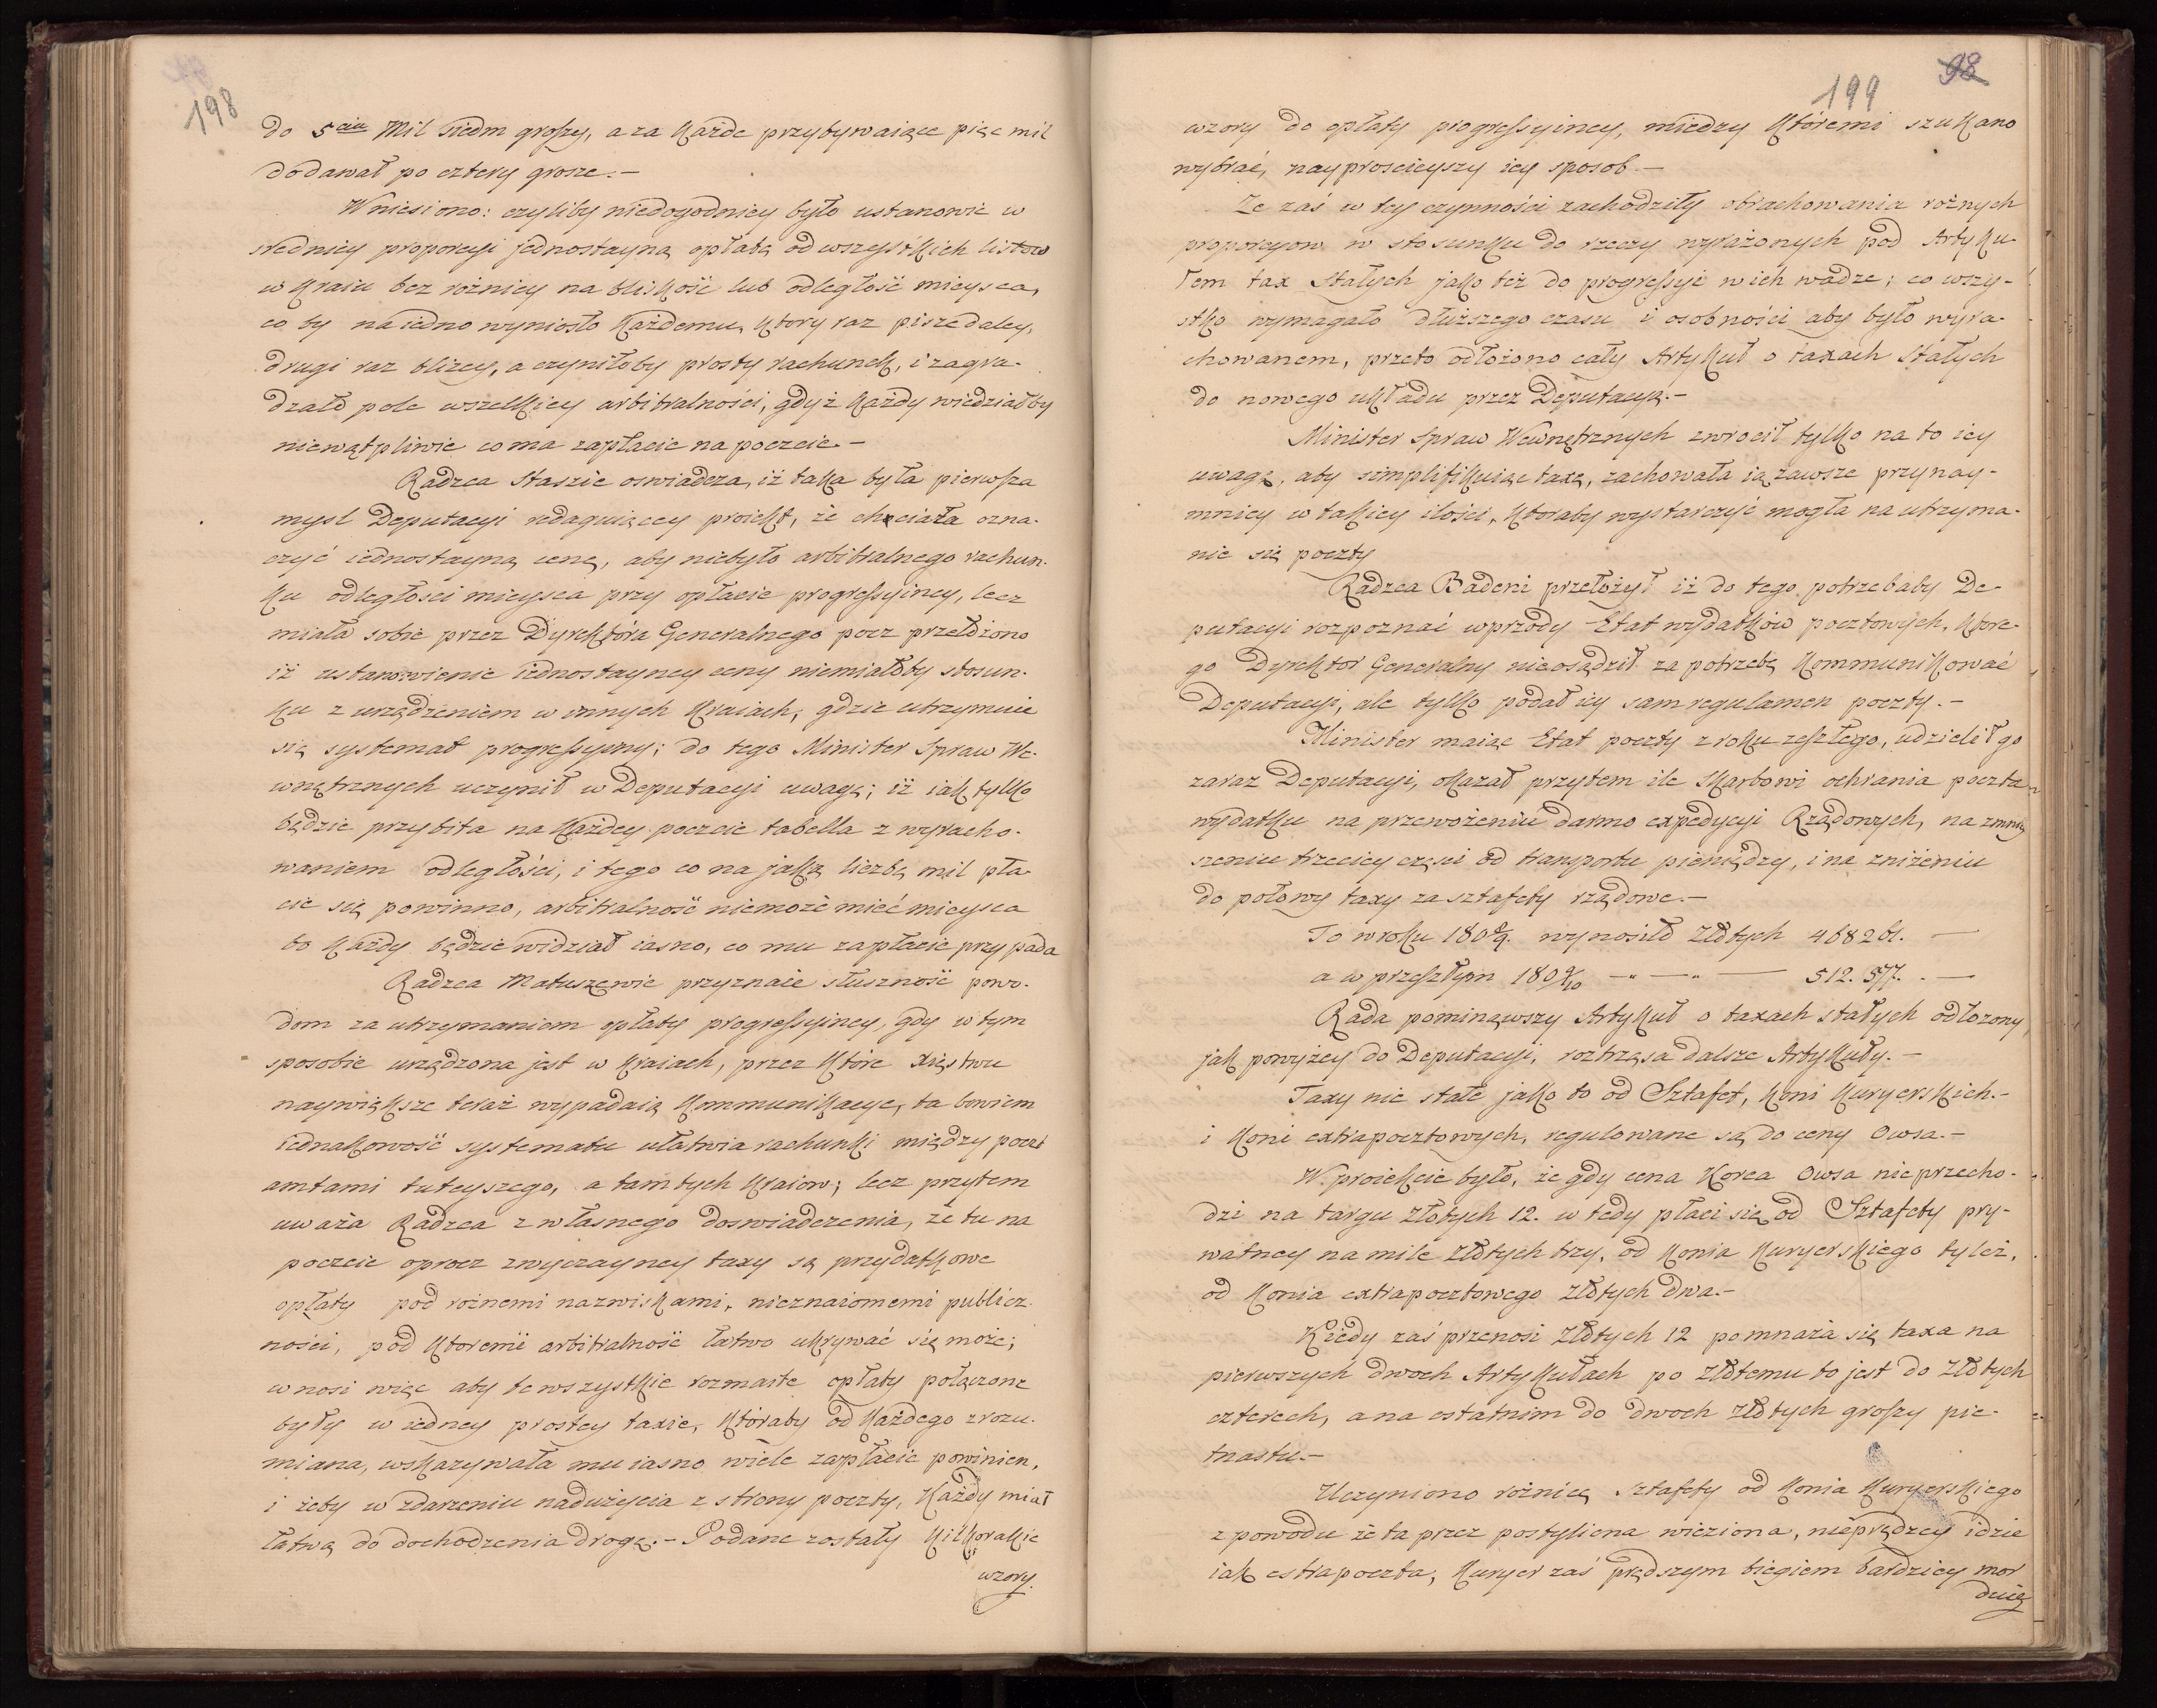 198
do 5ciu Mil siedm groszy, a za każde przybywaiące pięc mil
dodawał po cztery grosze.-
Wniesiono: czyliby niedogodniey było ustanowic w
sredniey proporcyi jednostayną opłatę od wszystkich listow
w kraiu bez rożnicy na bliskość lub odległość mieysca,
co by na iedno wyniosło każdemu, ktory raz pisze daley,
drugi raz bliżey, a czyniłoby prosty rachunek, i zagra-
dzało pole wszelkiey arbitralności, gdyż każdy wiedziałby
niewątpliwie co ma zapłacic na poczcie.-
Radzca Staszic oswiadcza, iż taka była pierwsza
mysl Deputacyi redaguiącey proiekt, że chciała ozna-
czyć iednostayną cenę, aby niebyło arbitralnego rachun-
ku odległości mieysca przy opłacie progressyiney, lecz
miała sobie przez Dyrektóra Generalnego pocz przełożono
iż ustanowienie iednostayney ceny niemiałoby stosun-
ku z urządzeniem w innych kraiach, gdzie utrzymuie
się systemat progressyiny; do tego Minister Spraw We-
wnętrznych uczynił w Deputacyi uwagę; iż iak tylko
będzie przybita na każdey poczcie tabella z wyracho-
waniem odległości, i tego co na jaką liczbę mil pła-
cic się powinno, arbitralność niemoże mieć mieysca
bo każdy będzie widział iasno, co mu zapłacic przypada
Radzca Matuszewic przyznaie słuszność powo-
dom za utrzymaniem opłaty progressyiney, gdy w tym
sposobie urządzona jest w kraiach, przez które xięstwu
naywiększe teraz wypadaią kommunikacye, ta bowiem
iednakowość systematu ułatwia rachunki między poczt
amtami tuteyszego, a tamtych kraiow; lecz przytem
uważa Radzca z własnego doswiadczenia, że tu na
poczcie oprocz zwyczayney taxy są przydatkowe
opłaty pod rożnemi nazwiskami, nieznaiomemi publicz-
ności, pod ktoremi arbitralność łatwo ukrywać się może;
wnosi więc aby te wszystkie rozmaite opłaty połączone
były w iedney prostey taxie, któraby od każdego zrozu-
miana, wskazywała mu iasno wiele zapłacic powinien,
i żeby w zdarzeniu nadużycia z strony poczty, każdy miał
łatwą do dochodzenia drogę.- Podane zostały kilkorakie
wzory.
98
199
wzory do opłaty progressyiney, miedzy któremi szukano
wybrać, nayproscieyszy iey sposob.-
Że zaś w tey czynności zachodziły obrachowania rożnych
proporcyow w stosunku do rzeczy wyrażonych pod Artyku-
łem tax stałych jako też do progressyi w ich wadze; co wszy-
stko wymagało dłuższego czasu i osobności aby było wyra-
chowanem, przeto odłożono cały Artykuł o taxach stałych
do nowego układu przez Deputacyą.-
Minister Spraw Wewnętrznych zwrocił tylko na to iey
uwagę, aby simplifikuiąc taxę, zachowała ią zawsze przynay-
mniey w takiey ilości, ktoraby wystarczyć mogła na utrzyma-
nie się poczty
Radzca Badeni przełożył iż do tego potrzebaby De-
putacyi rozpoznać wprzody Etat wydatków pocztowych, które-
go Dyrektor Generalny nieosądził za potrzebę kommunikować
Deputacyi, ale tylko podał iey sam regulamen poczty.-
Minister maiąc Etat poczty z roku zeszłego, udzielił go
zaraz Deputacyi, okazał przytem ile Skarbowi ochrania poczta
wydatku na przewożeniu darmo expedycyi Rządowych, na zmniey
szeniu trzeciey częsci od transportu pieniędzy, i na zniżeniu
do połowy taxy za sztafety rządowe.-
To w roku 1808/9. wynosiło Złotych 468261. —
a w przeszłym 1809/10 —„—„— 512.577. . —
Rada pominąwszy Artykuł o taxach stałych odłożony,
jak powyżey do Deputacyi, roztrząsa dalsze Artykuły.-
Taxy nie stałe jako to od Sztafet, koni kuryerskich.-
i koni extrapocztowych, regulowane są do ceny Owsa.-
W proiekcie było, że gdy cena Korca Owsa nieprzecho-
dzi na targu Złotych 12. w tedy płaci się od Sztafety pry-
watney na mile złotych trzy, od konia kuryerskiego tyleż,
od konia extrapocztowego złotych dwa.-
Kiedy zaś przenosi Złotych 12 pomnaża się taxa na
pierwszych dwoch Artykułach po złotemu to jest do Złotych
czterech, a na ostatnim do dwoch złotych groszy pię-
tnastu.-
Uczyniono rożnicę sztafety od konia kuryerskiego
z powodu że ta przez postyliona wieziona, nieprędzey idzie
iak extrapoczta, kuryer zaś prędszym biegiem bardziey mor
duie